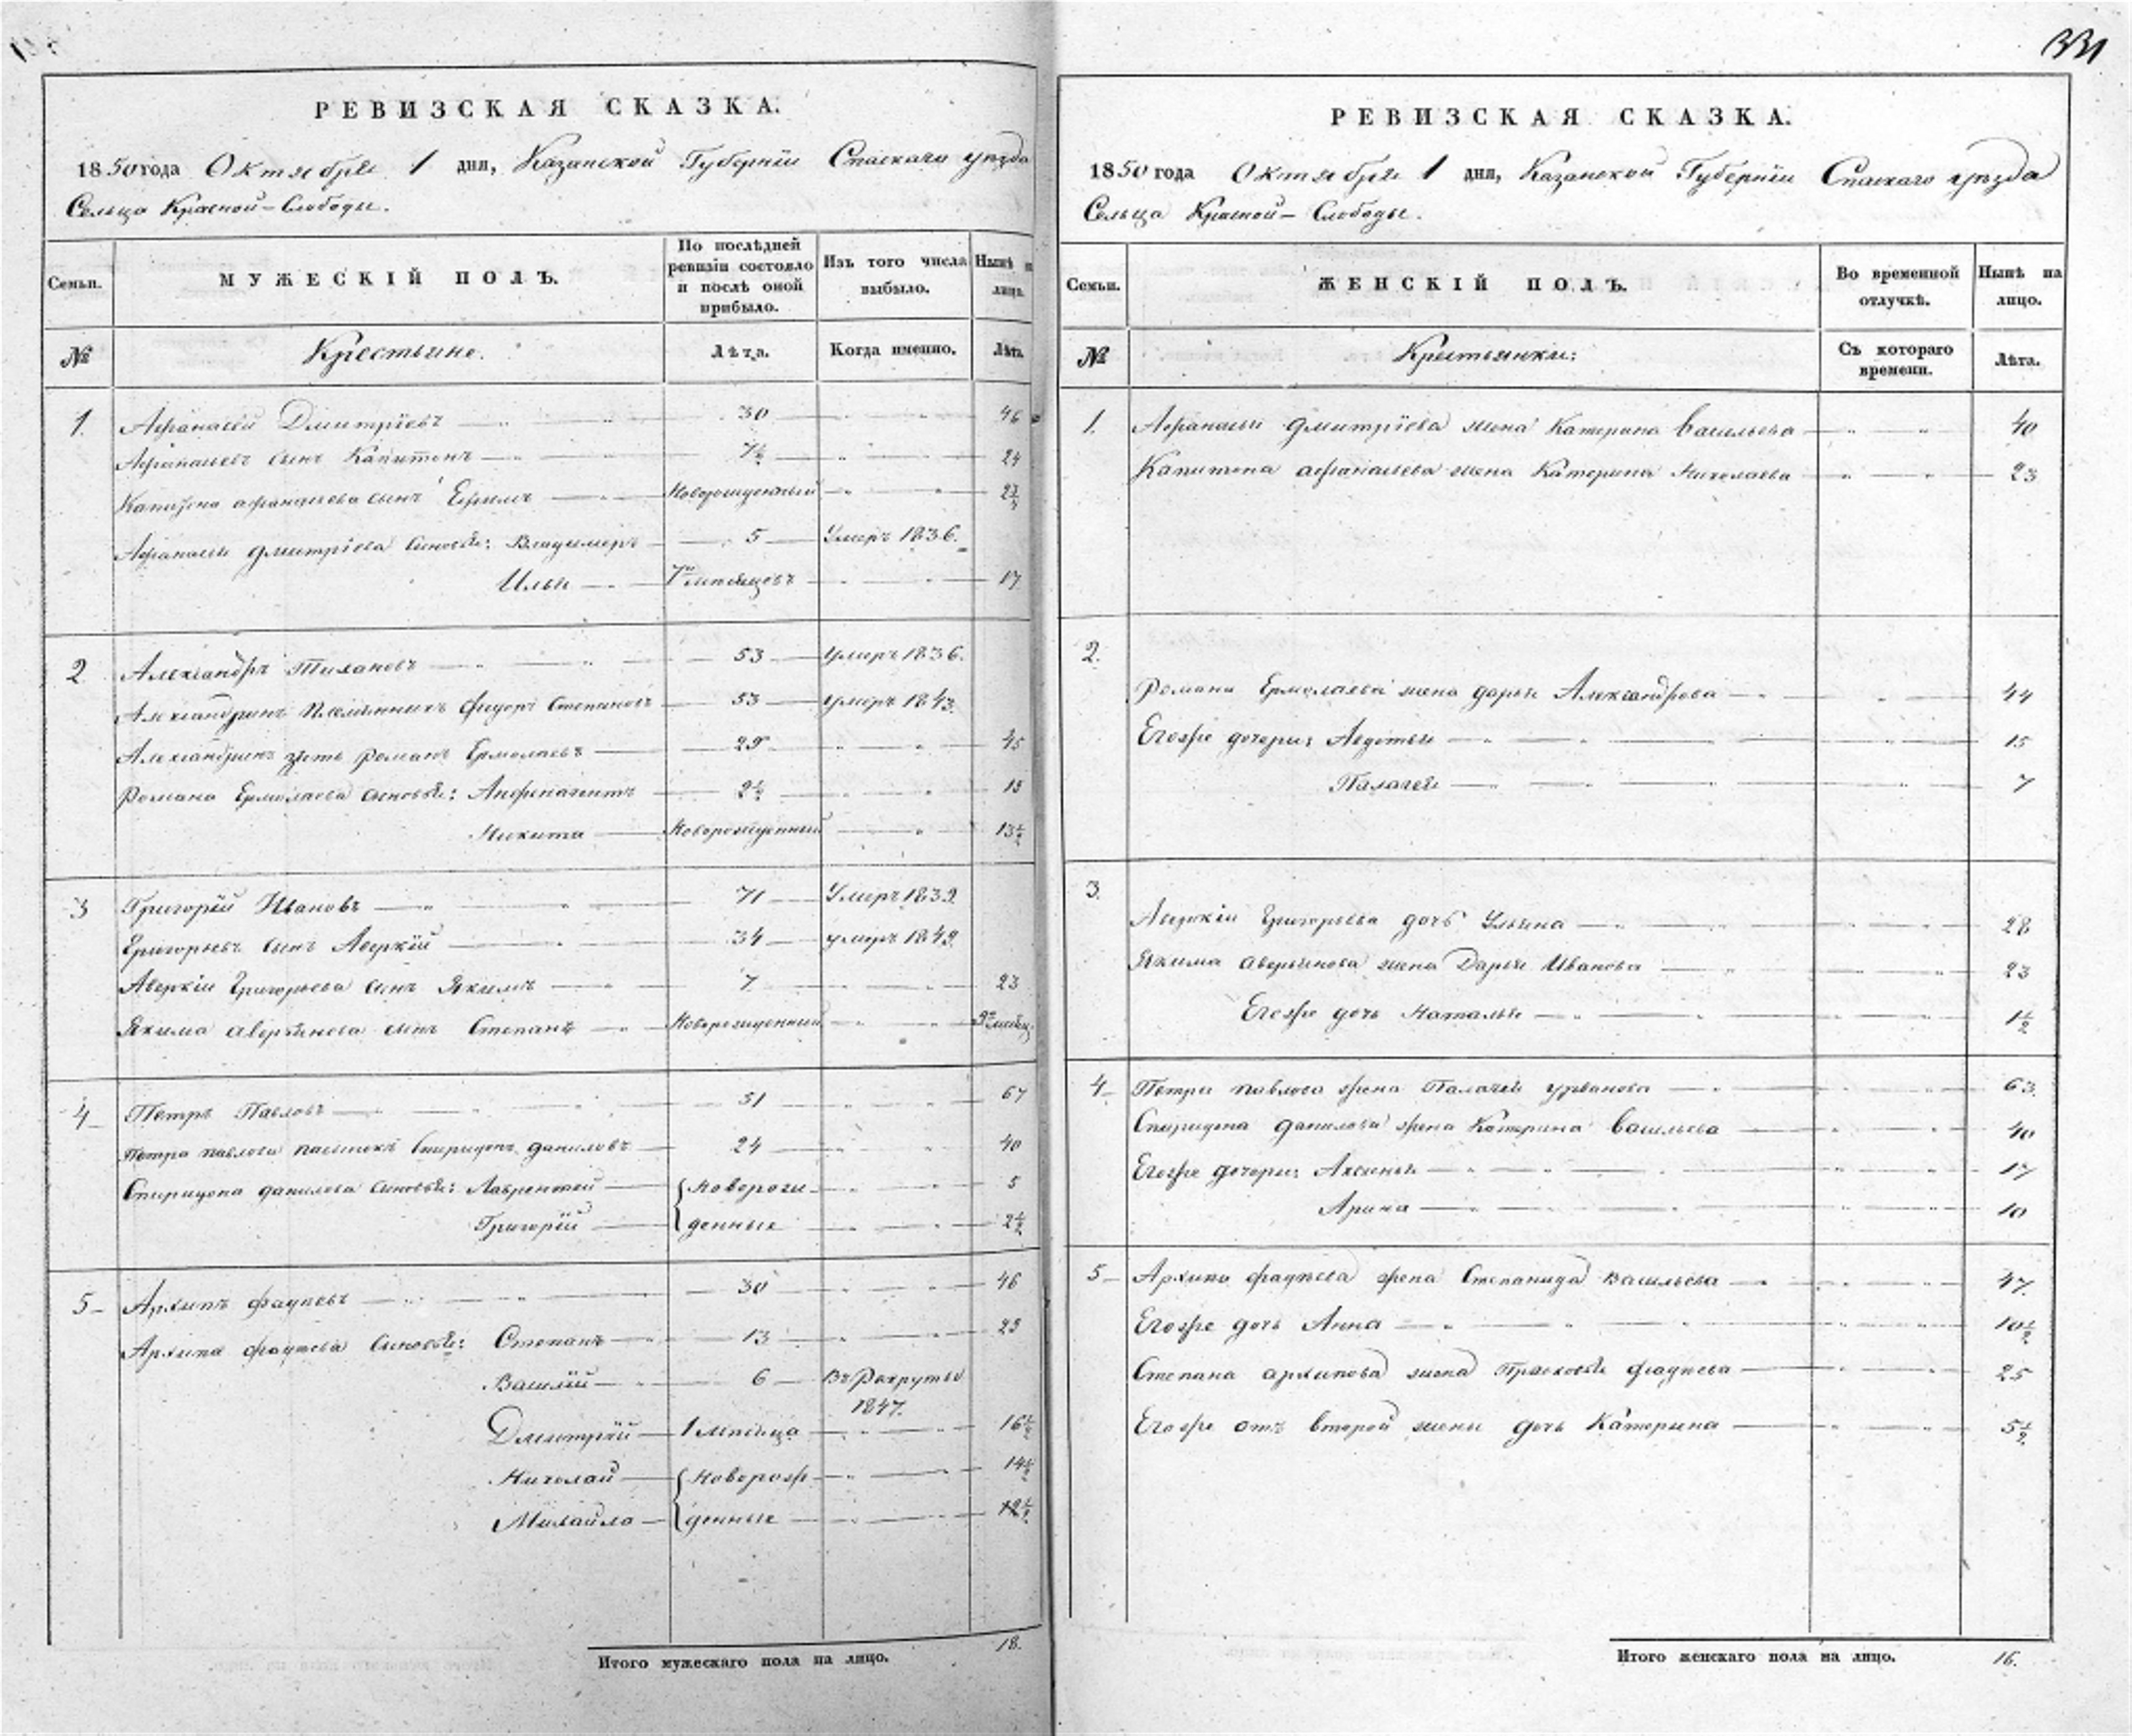 РЕВИЗСКАЯ СКАЗКА.
1850 года Октября 1 дня, Казанской Губернiи Спаскаго уѣзда
Сельца Красной-Слободы.
Семьи.
МУЖЕСКIЙ ПОЛЪ.
По послѣдней ревизiи состояло и послѣ оной прибыло.
Изъ того числа выбыло.
Нынѣ на лицо.
№ Крестьяне. Лѣта. Когда именно. Лѣта.
1. Афанасiй Дмитрiевъ 30 46
Афанасьевъ сынъ Капитонъ 7½ 24
Капитона афанасьева сынъ Ефимъ Новорожденный
Афанасья дмитрiева сыновья: Владимеръ 5 Умеръ 1836.
Илья 7ми мѣсяцовъ 17
2 Александръ Тихановъ 53 умеръ 1836.
Александринъ племянникъ Федоръ Степановъ 53 умеръ 1843.
Александринъ зять Романъ Ермолаевъ 29 45
Романа Ермолаева сыновья: 2½ 18
Никита Новорожденный 13½
3 Григорiй Ивановъ 71 Умеръ 1839.
Григорьевъ сынъ Аверкiй 34 умеръ 1849.
Аверкiя Григорьева сынъ Якимъ 7 23
Якима аверьянова сынъ Степанъ Новорожденный
4 Петръ Павловъ 51 67
Петра павлова пасынокъ Спиридонъ даниловъ 24 40
Спиридона данилова сыновья: Лаврентей { Новорож- 5
Григорiй денные 2½
5 Архипъ фадѣевъ 30 46
Архипа фадѣева сыновья: Степанъ 13 29
Василiй 6 Въ Рекруты 1847.
Дмитрiй 1 мѣсяца 16½
Николай { Новорож- 14½
Михайла денные 12½
Итого мужескаго пола на лицо. 18.
331
РЕВИЗСКАЯ СКАЗКА.
1850 года Октября 1 дня, Казанской Губернiи Спаскаго уѣзда
Сельца Красной-Слободы.
Семьи.
ЖЕНСКIЙ ПОЛЪ.
Во временной отлучкѣ.
Нынѣ на лицо.
№ Крестьянки: Съ котораго времени. Лѣта.
1. Афанасья дмитрiева жена Катерина Васильева 40
Капитона афанасьева жена Катерина Николаева 23
2. Романа Ермолаева жена дарья Александрова 44
Егожe дочери: Авдотья 15
Палагея 7
3. Аверкiя Григорьева дочь Ульяна 28
Якима аверьянова жена Дарья Иванова 23
Егоже дочь Наталья 1½
4 Петра павлова жена Палагея урванова 63.
Спиридона данилова жена Катерина Васильева 40
Егоже дочери: Аксинья 17
Арина 10
5 Архипа фадѣева жена Степанида васильева 47.
Егоже дочь Анна 10½
Степана архипова жена Прасковья фадѣева 25
Егоже отъ второй жены дочь Катерина 5½
Итого женскаго пола на лицо. 16.